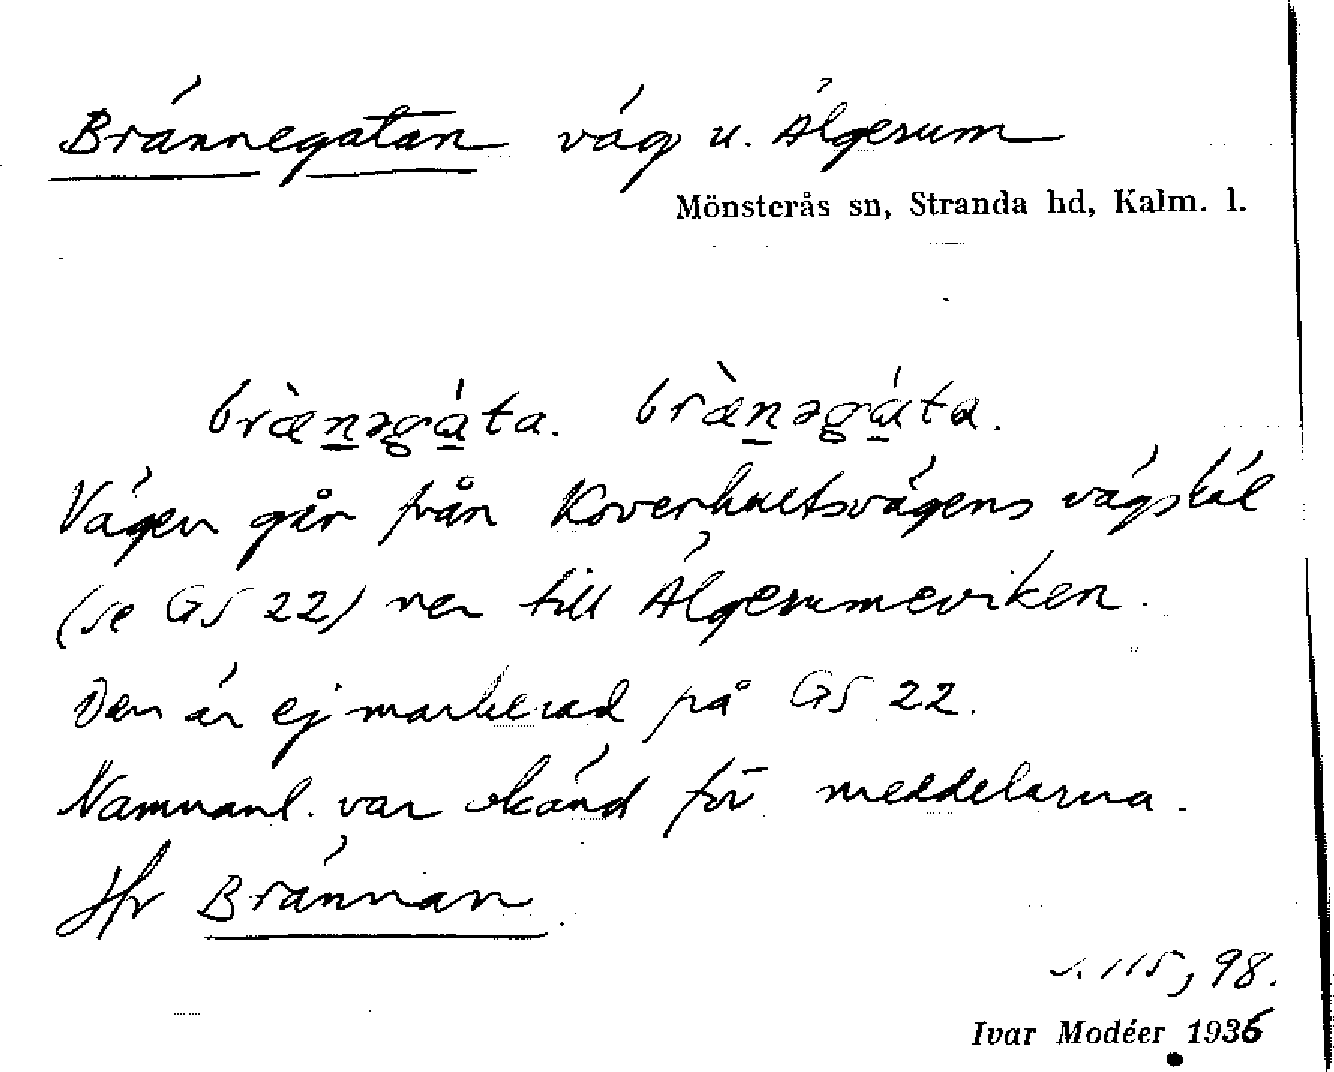 Brännegatan väg u. Älgerum
Mönsterås sn, Stranda hd, Kalm. l.
bræ̀nəgáta. bræ̀nəgáta.
Vägen går från Koverhultsvägens vägskäl
(se GS 22) ner till Älgerumeviken.
Den är ej markerad på GS 22.
Namnanl. var okänd för meddelarna.
Jfr Brännan.
s. 115, 98.
Ivar Modéer 1936